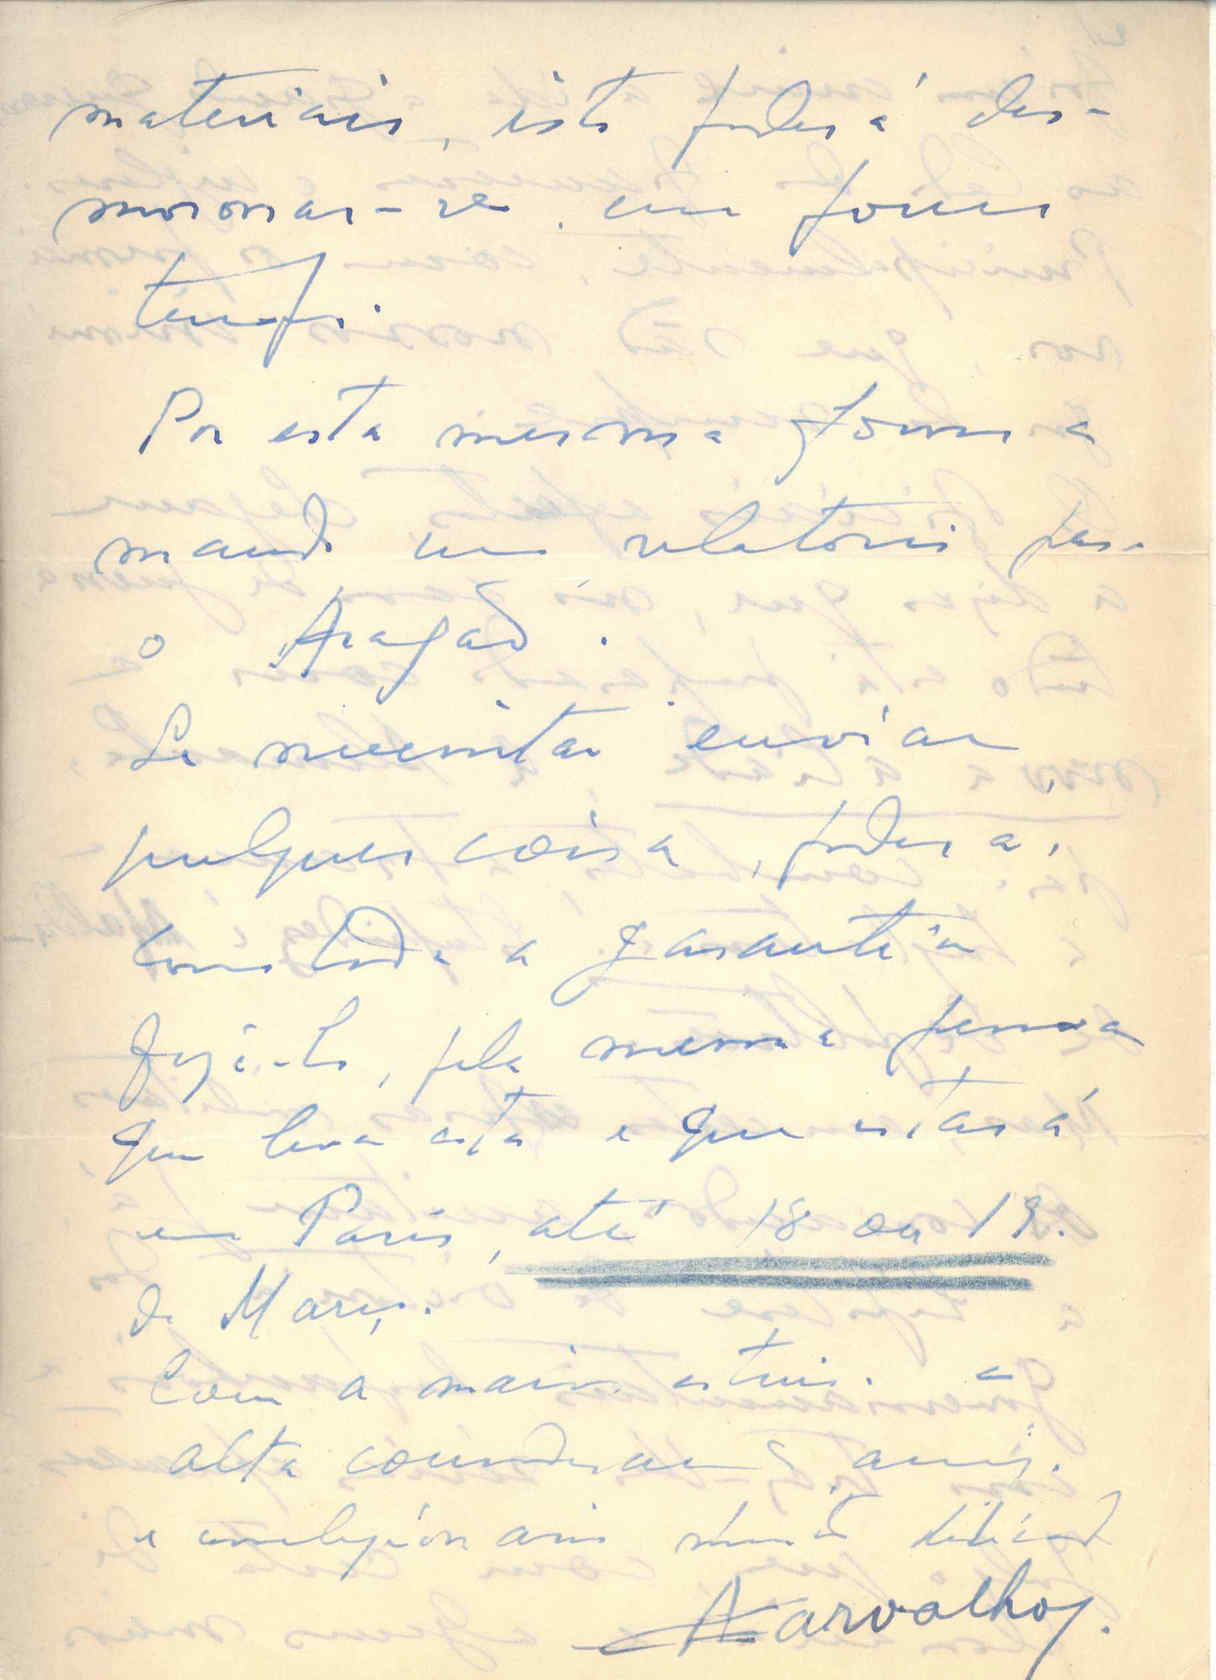 materiais, isto poderá des-
moronar-se em pouco
tempo.
Por esta mesma forma
mando um relatorio para
o Aragão.
Se necessitar enviar
qualquer coisa, poderá,
com toda a garantia
fazê-lo, pela mesma pessoa
que leva esta e que estará
em Paris, até 18 ou 19.
de Março.
Com a maior estima e
alta consideração amigo
e correligionario muito dedicado
ACarvalho